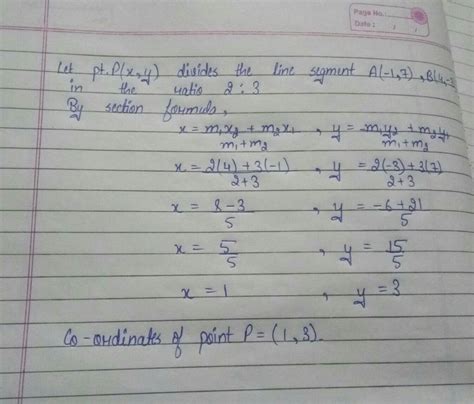 Page No.:
Date: / /
Let pt. P(x,y) divides the line segment A(-1,7), B(4,-3)
in the ratio 2:3
By section formula,
x = m₁x₂ + m₂x₁ / m₁+m₂ , y = m₁y₂ + m₂y₁ / m₁+m₂
x = 2(4)+3(-1) / 2+3 , y = 2(-3)+3(7) / 2+3
x = 8-3 / 5 , y = -6+21 / 5
x = 5/5 , y = 15/5
x = 1 , y = 3
Co-ordinates of point P = (1,3).